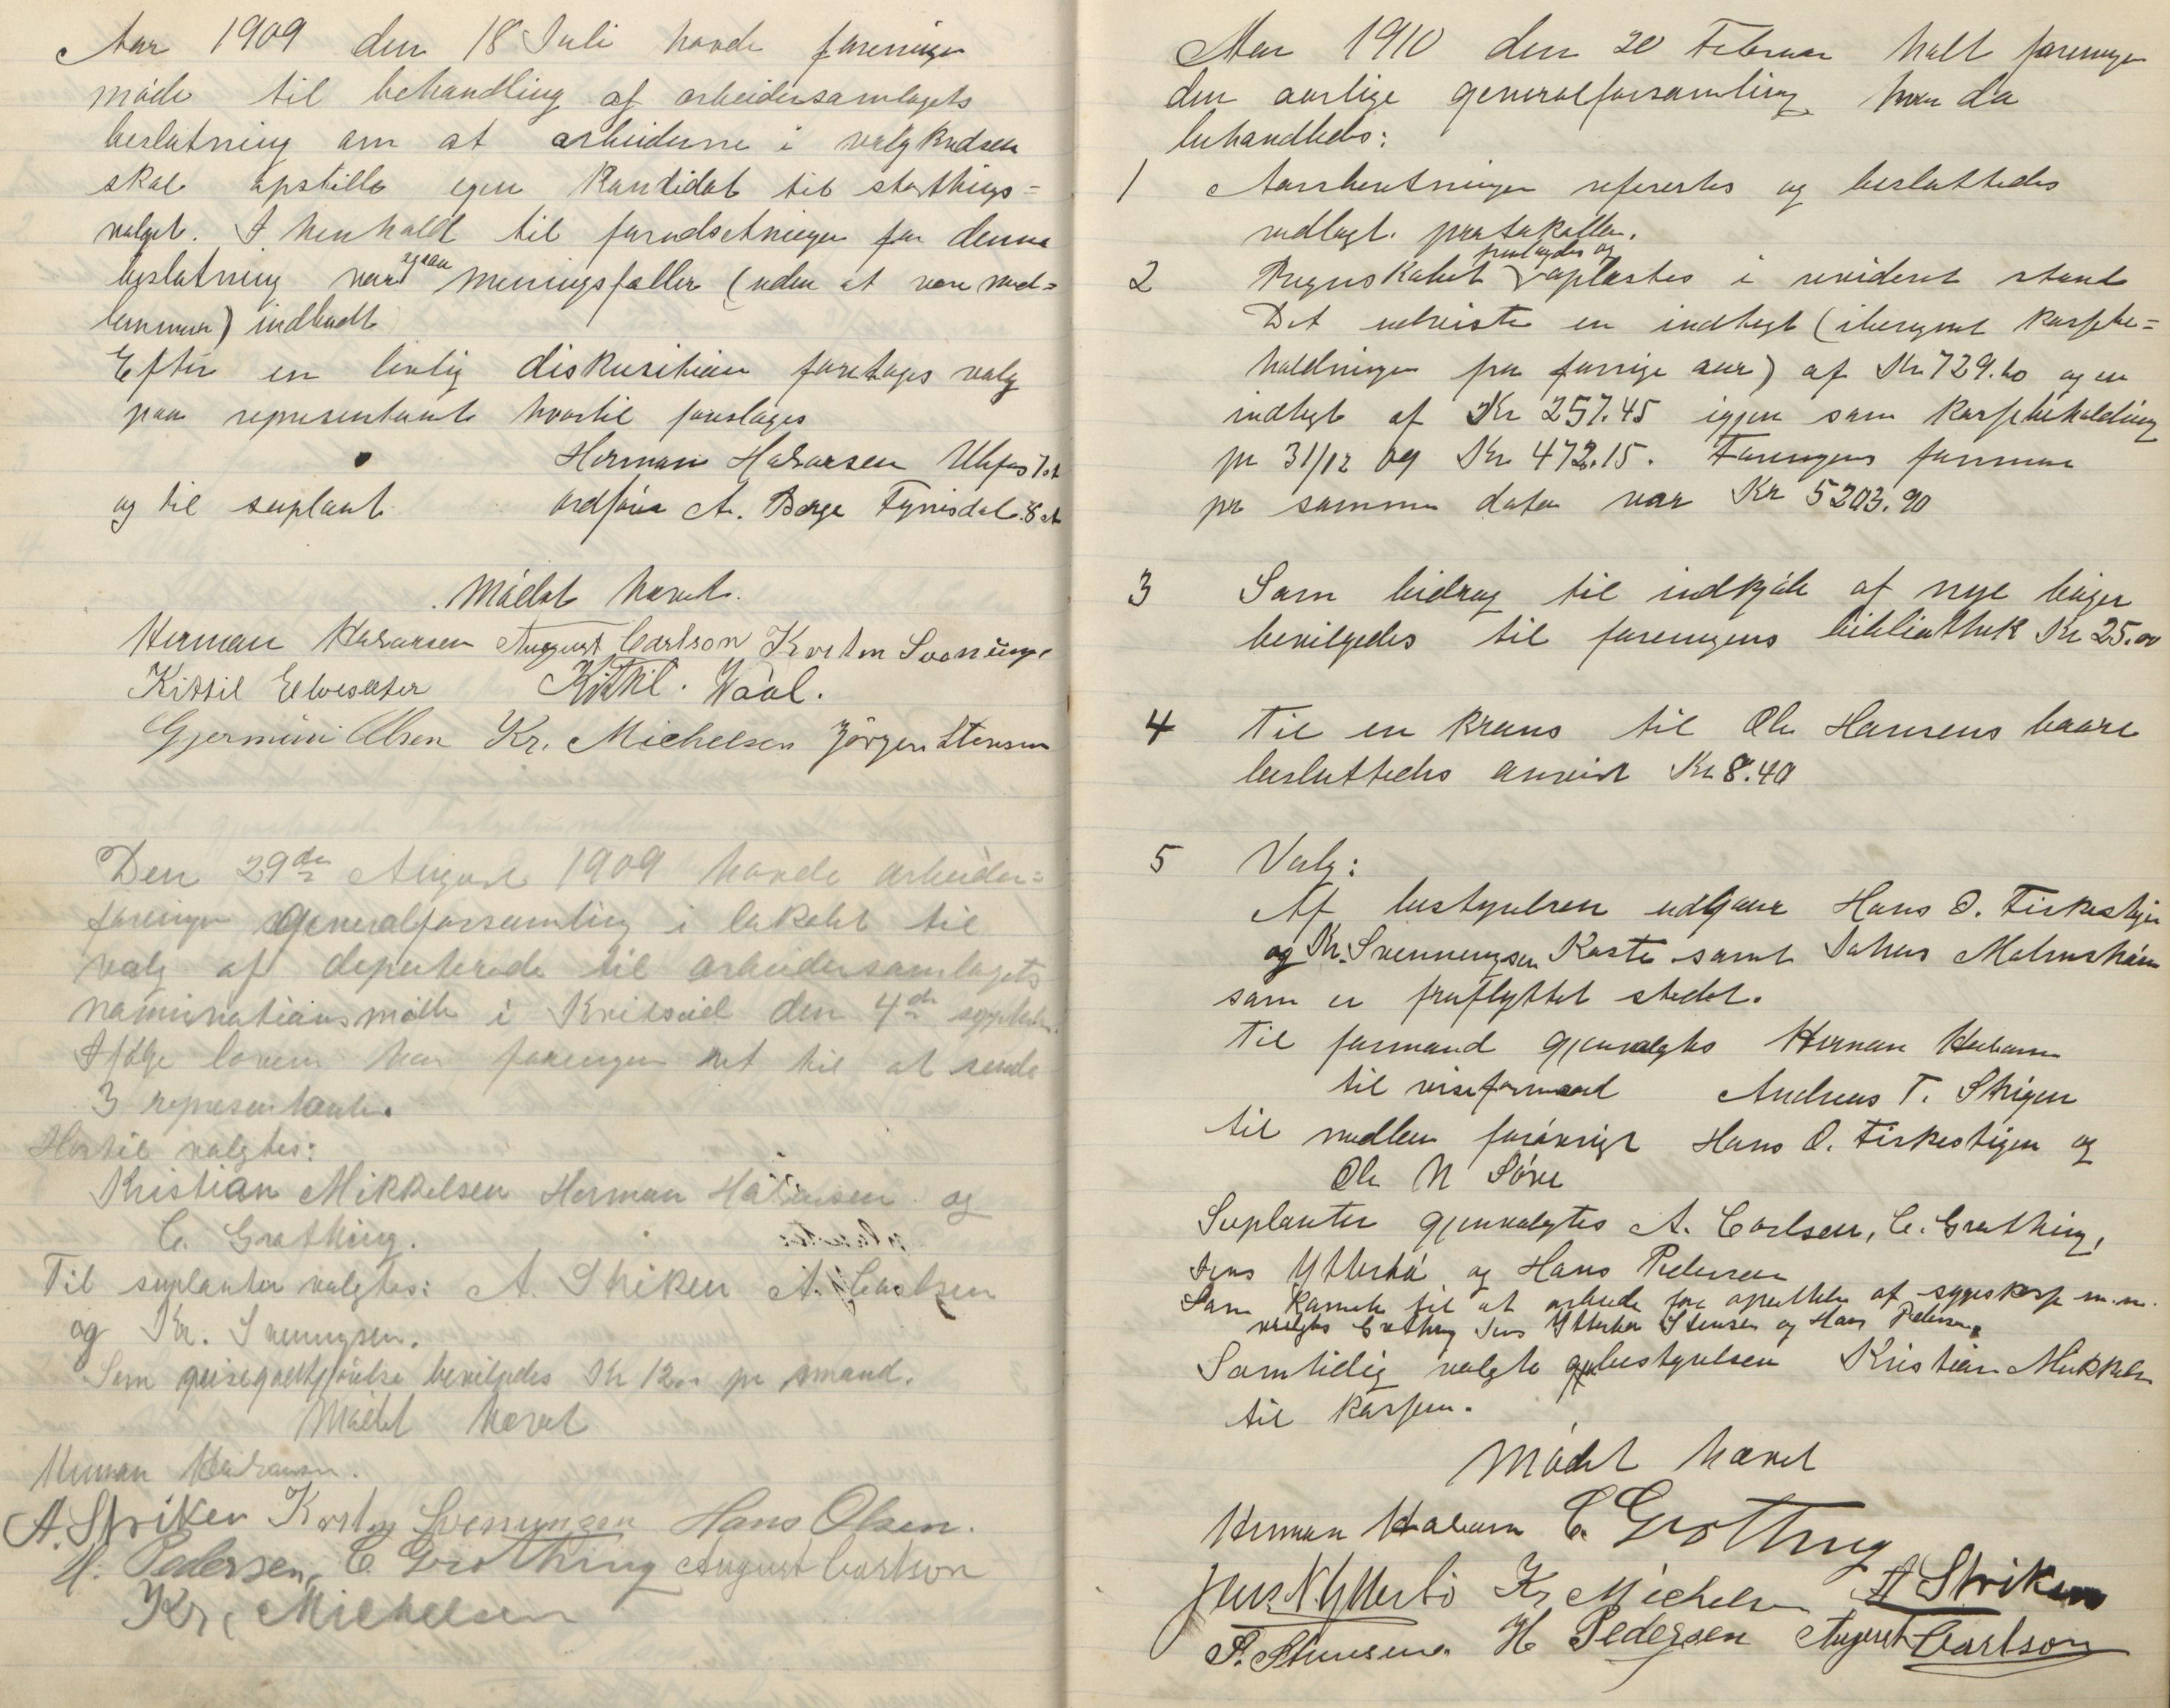 Aar 1909 den 18 Juli havde foreningen
møde til behandling af arbeidersamlagets
beslutning om at arbeiderne i valgkredsen
skal opstille egen kandidat til stortings=
valget. I henhold til forudsetningen for denne
beslutning var ogsaa meningsfæller (uden at være med=
lemmer) indbudt
Efter en livlig diskusition foretages valg
paa representant hvortil foreslages
Herman Halvorsen Ulefos 7 st
og til suplant ordfører A. Berge Fyrisdal 8 st
Mödet hævet.
Herman Halvorsen August Carlson Korsten Svenunge
Kittil Elvesæter Kittil. Waal.
Gjermun Olsen Kr. Michelsen Jörgen Stensen
Den 29de August 1909 havde arbeider=
foreningen generalforsamling i lokalet til
valg af deputerede til arbeidersamlagets
nominationsmöde i Kviteseid den 4de september.
Ifölge loven har foreningen ret til at sende
3 representanter.
Hertil valgtes:
Kristian Mikkelsen Herman Halvorsen og
C. Grothing.
Til suplanter valgtes: A. Striken A. Carlsen
og Kr. Svenungsen.
Som reisegodtgjörelse bevilgedes Kr 12.00 pr mand.
Mödet hævet
Herman Halvorsen.
A. Striken Korsten Svenungsen Hans Olsen.
H. Pedersen, C Grothing August Carlson
Kr. Michelsen
Aar 1910 den 20 Februar holt foreningen
den aarlige generalforsamling hvor da
behandledes:
1 Aarsberetningen referertes og besluttedes
vedlagt protokollen.
fremlagdes og
2 Regnskabet oplæstes i revideret stand
Det udviste en indtegt (iberegnet kassebe=
holdningen fra forrige aar) af Kr 729.60 og en
indtegt af Kr 257.45 igjen som kassebeholdning
pr 31/12 09 Kr 472.15. Foreningens formue
pr samme dato var Kr 5203.90
3 Som bidrag til indkjöb af nye böger
bevilgedes til foreningens bibliothek Kr 25.00
4 Til en krans til Ole Hansens baare
besluttedes anvist Kr 8.40
5 Valg:
Af bestyrelsen udgaar Hans O. Fiskestigen
og Kr. Svennungsen Kaste samt Johns Malmshaim
som er fraflyttet stedet.
Til formand gjenvalgtes Herman Halvorsen
til viseformand Andreas T. Stigen
til medlem forövrigt Hans O. Fiskestigen og
Ole N Söve
Suplanter gjenvalgtes A. Carlsen, C. Grothing,
Jens Ytterbö og Hans Pedersen
Som komite til at arbeide for oprettelse af sygekasse m.m.
valgtes Grothing Jens Ytterbö Stensen og Hans Pedersen.
Samtidig valgte bestyrelsen Kristian Mikkelsen
til kasser.
Mödet hævet
Herman Halvorsen C. Grothing
Jens N. Ytterbö Kr Michelsen A Striken
J. Stensen. H Pedersen August Carlson